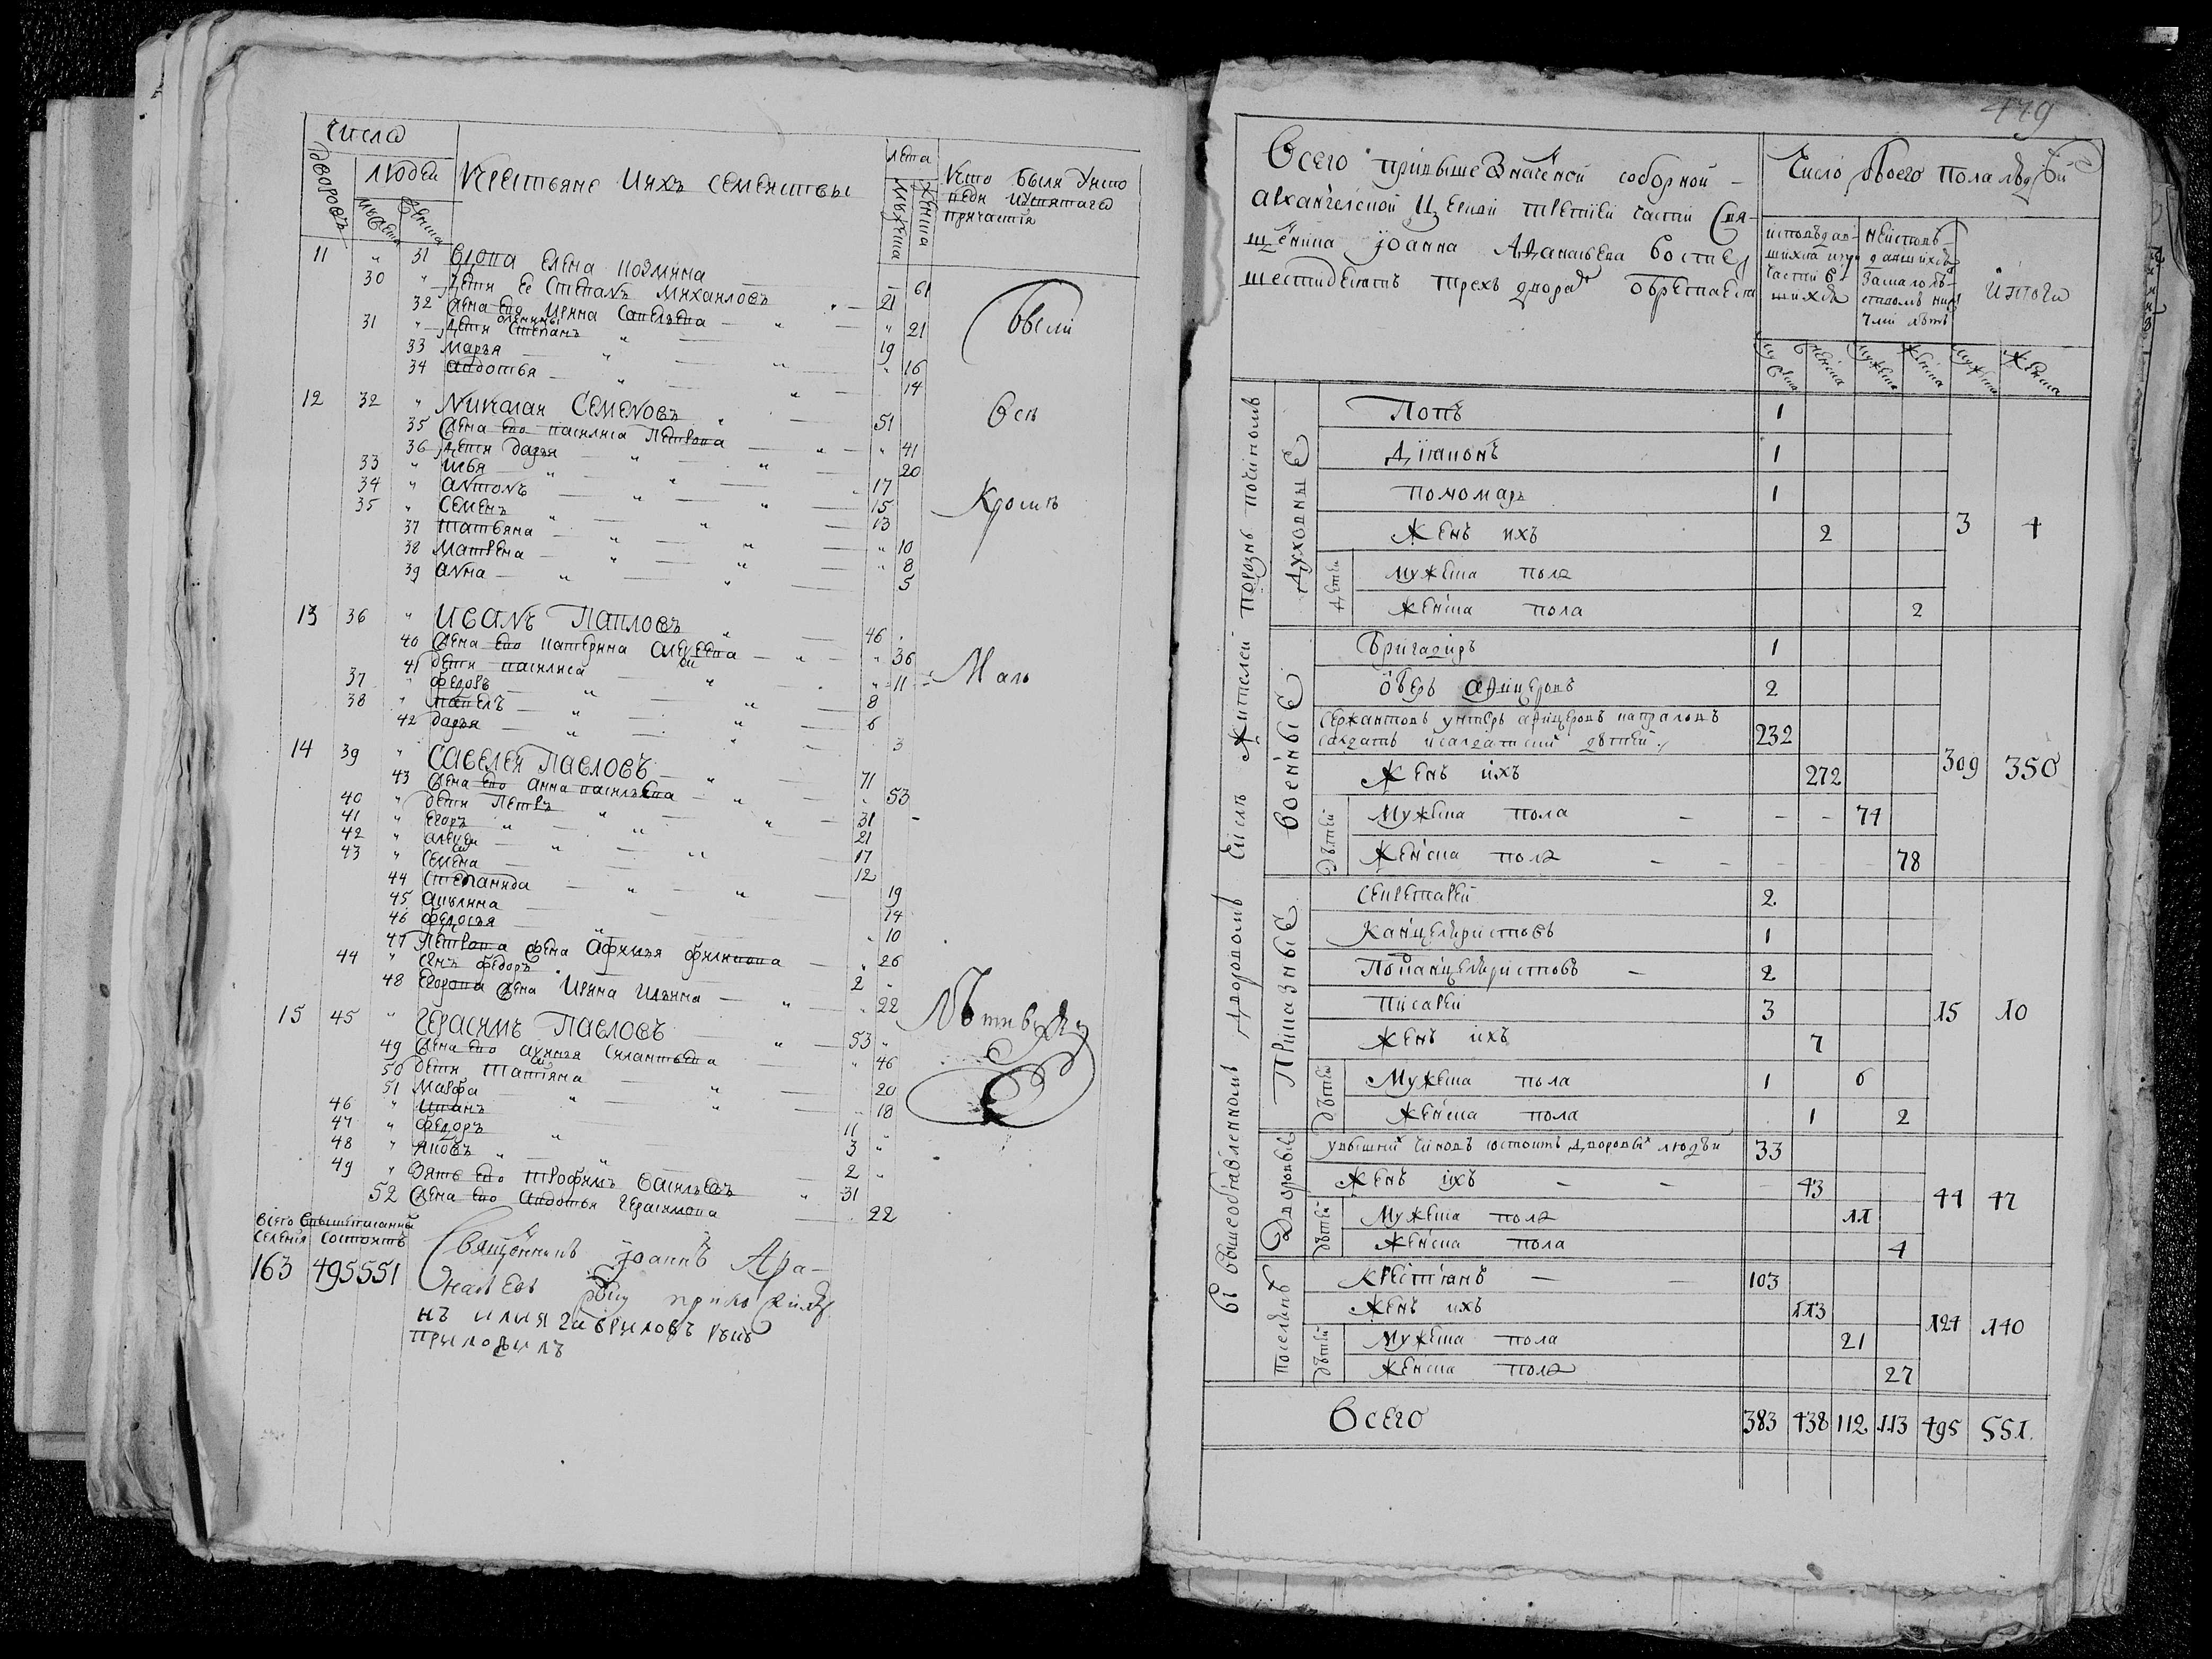 Числа
дворовъ
людеи
мужеска
женска
Крестьяне и ихъ семенствы
лета
мужеска
женска
Кто были у испо
веди и святаго
причастія
11 " 31 вдова Елена Козмина — 61
30 " дети ее Степанъ Михаиловъ " — 21
32 жена ево Ирина Савельева — " — " 21
31 " дети Степанъ " — 19
33 Марья — " — " 16
34 авдотья — " — 14
Все
были
12 32 " Николаи Семеновъ " — 51
35 жена ево василиса Петрова — " — " 41
36 дети дарья — " — " 20
33 " илья — " — 17
34 " антонъ — " — 15
35 " Семенъ — " — 13
37 татьяна — " — " 10
38 Матрена — " — " 8
39 анна — " — 5
Кроме
13 36 " Иванъ Павловъ " — 46
40 жена ево катерина алексеева — " — " 36
41 дети василиса — " 11
37 " федоръ — " — 8
38 " павелъ — " — 6
42 дарья — " — 3
Мало
14 39 " Савелеи Павловъ — " — 71
43 жена ево анна васильева — " — " 53
40 " дети Петръ " — 31
41 " Егоръ " — " — 21
42 " алексеи — " — 17
43 " Семенъ — 12
44 Степанида — " — " — 19
45 акулина — 14
46 федосья — " — 10
47 Петрова жена Афимья филипова — " 26
44 " сынъ федоръ — 2 "
48 Егорова жена Ирина Ильина — " — " 22
летныхъ
15 45 " Герасимъ Павловъ — " — 53 "
49 жена ево Силантьева — " 46
50 дети татіяна — " — 20
51 Марфа — " — " — 18
46 " Иванъ — 11
47 " федоръ — " — 3 "
48 " яковъ " — " — 2 "
49 " зять ево трофимъ васильевъ — " 31
52 жена ево авдотья Герасимова — 22
всего
селенія состоитъ
163 495 551
Священникъ іоаннъ Афа-
насьевъ руку приложилъ
илия гавриловъ руку
приложилъ
479
Всего при вышеозначеной соборной —
архангелской церкви третіеи части Свя-
щеника іоанна Афанасьева во сте
шестидесятъ трехъ дворахъ обретается
Число обоего пола людѣй
исповѣдав-
шихся и при
частив
шихся
не исповѣ-
давшихся
за малолѣ-
ствомъ ниже
7 ми лѣтъ
итого
мужеска
женска
мужеска
женска
мужеска
женска
духовныЕ
Попъ 1
Дїаконъ 1
Пономарь 1
Женъ ихъ 2
детеи
Мужеска пола
Женска пола 2
3 4
военныЕ
Бригадиръ 1
оберъ афицеровъ 2
Сержантовъ унтеръ афицеровъ капраловъ
салдатъ и салдатскихъ дѣтей 232
Женъ ихъ 272
дѣтей
Мужеска пола — — — 74
Женска пола — — — — — 78
309 350
ПриказныЕ
Секретарей 2
Канцеляристовъ 1
Подканцеляристовъ — 2
Писарей 3
Женъ ихъ 7
дѣтей
Мужеска пола 1 6
Женска пола 1 2
15 10
Дворовые
состоитъ дворовыхъ людѣи 33
Женъ ихъ — — 43
дѣтей
Мужеска пола 11
Женска пола 4
44 47
Поселянъ
Крестїянъ — — 103
Женъ ихъ 113
дѣтей
Мужеска пола 21
Женска пола 27
124 140
Всего 383 438 112 113 495 551.